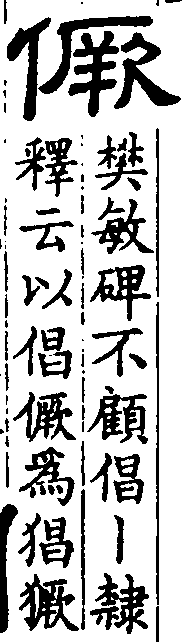 僞
樊敏碑不顧倡丨隸
釋云以倡僞為猖獗